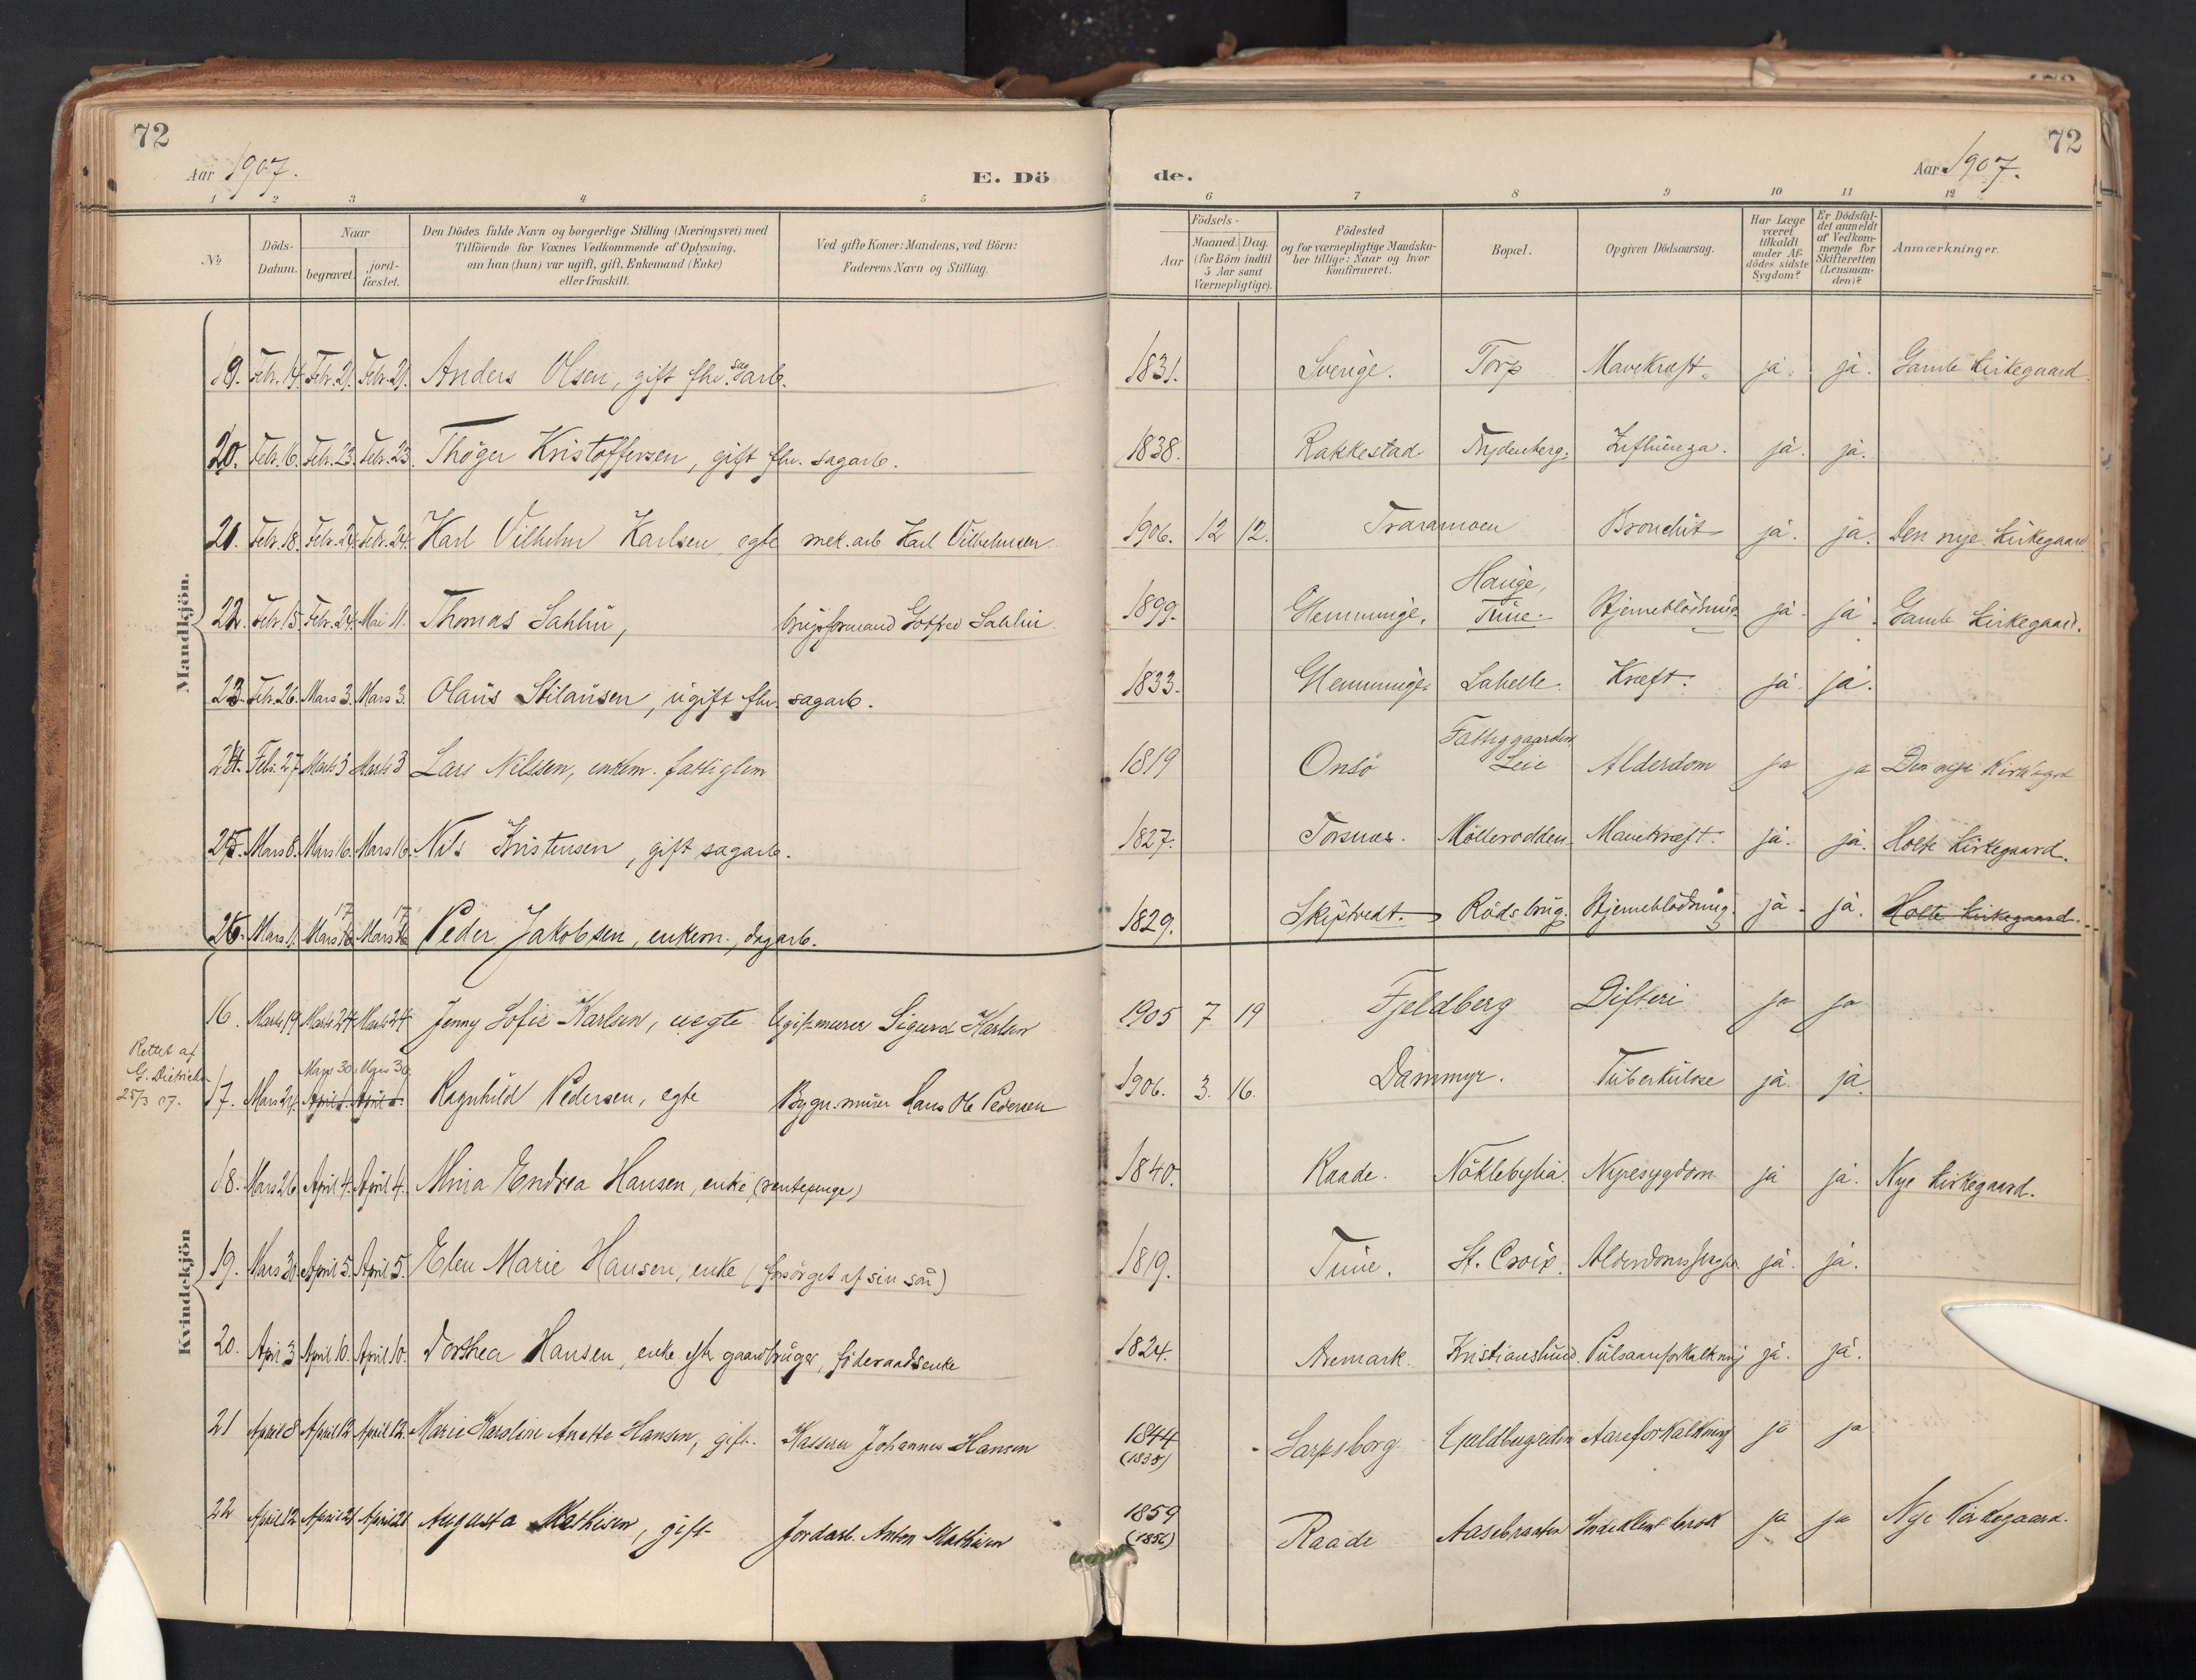 72
Aar 1907.
E. Dö
1 2 3 4 5
No
Döds-Datum.
Naar
begravet.
jord-fæstet.
Den Dödes fulde Navn og borgerlige Stilling (Næringsvei) med
Tilföiende for Voxnes Vedkommende af Oplysning,
om han (hun) var ugift, gift, Enkemand (Enke)
eller fraskilt.
Ved gifte Koner: Mandens, ved Börn:
Faderens Navn og Stilling.
Mandkjön.
19. Febr. 14. Febr. 21. Febr. 21. Anders Olsen, gift fhv. sagarb.
20. Febr. 16. Febr. 23. Febr. 23. Thöger Kristoffersen, gift fhv. sagarb.
21. Febr. 18. Febr. 24. Febr. 24. Karl Vilhelm Karlsen, egte mek. arb. Karl Vilhelmsen
22. Febr. 15. Febr. 24. Mai 11. Thomas Sahlin, brugsformand Gotfred Sahlin
23. Febr. 26. Mars 3. Mars 3. Olaus Stilausen, ugift fhv. sagarb.
24. Feb. 27 Marts 3 Marts 3 Lars Nilssen, enkem. fattiglem
25. Mars 8. Mars 16. Mars 16. Nils Kristensen, gift sagarb.
17 17
26. Mars 11. Mars 16. Mars 16. Peder Jakobsen, enkem., dagarb.
Kvindekjön
16. Marts 19 Marts 24 Marts 24 Jenny Sofie Karlsen, uegte Ugift murer Sigurd Karlsen
Rettet af
G. Dietrichs
25/3 07.
Mars 30. Mars 30
17. Mars 24. April 1. April 1. Ragnhild Pedersen, egte Bygn. murer Hans Ole Pedersen
18. Mars 26 April 4. April 4. Mina Endrea Hansen, enke (rentepenge)
19. Mars 30 April 5. April 5. Elen Marie Hansen, enke (forsörget af sin sön)
20. April 3 April 10. April 10. Dorthea Hansen, enke efter gaardbruger, föderaadsenke
21 April 8 April 12 April 12. Marie Karoline Anette Hansen, gift. Kasserer Johannes Hansen
22 April 12 April 21 April 21 Augusta Mathisen, gift Jordarb. Anton Mathisen
72
Aar 1907.
de.
6 7 8 9 10 11 12
Födsels-
Aar
Maaned. Dag.
(for Börn indtil
5 Aar samt
Værnepligtige).
Födested
og for værnepligtige Mandska-
ber tillige: Naar og hvor
Konfirmeret.
Bopæl.
Opgiven Dödsaarsag.
Har Læge
været
tilkaldt
under Af-
dödes sidste
Sygdom?
Er Dödsfal-
det anmeldt
af Vedkom-
mende for
Skifteretten
(Lensman-
den)?
Anmærkninger.
1831. Sverige. Torp Mavekræft. ja. ja. Gamle Kirkegaard.
1838. Rakkestad Frydenberg. Influenza. ja. ja.
1906. 12 12. Traramoen Bronchit ja. ja. Den nye Kirkegaard
Hauge,
1899. Glemminge. Tune. Hjerneblödning ja. ja. Gamle Kirkegaard.
1833. Glemminge Lahelle. Kræft. ja. ja.
Fattiggaarden
1819 Onsö Leie Alderdom ja ja Den nye Kirkegrd
1827. Torsnes. Mölleroddens. Mavekræft. ja. ja. Holte Kirkegaard.
1829. Skiptvedt. Röds brug. Hjerneblödning. ja. ja. Holte Kirkegaard.
1905 7 19 Fjeldberg Difteri ja ja
1906. 3. 16. Dammyr. Tuberkulose ja. ja
1840. Raade. Nöklebylia. Nyresygdom ja ja. Nye Kirkegaard.
1819. Tune. St. Croix. Alderdomssvaghed ja. ja.
1824. Aremark. Kristianslund Pulsaareforkalkning ja. ja.
1844
(1838) Sarpsborg Guldbergsiden Aareforkalkning ja ja
1859
(1856) Raade Aasebraaten Indeklemt brok ja ja Nye Kirkegaard.